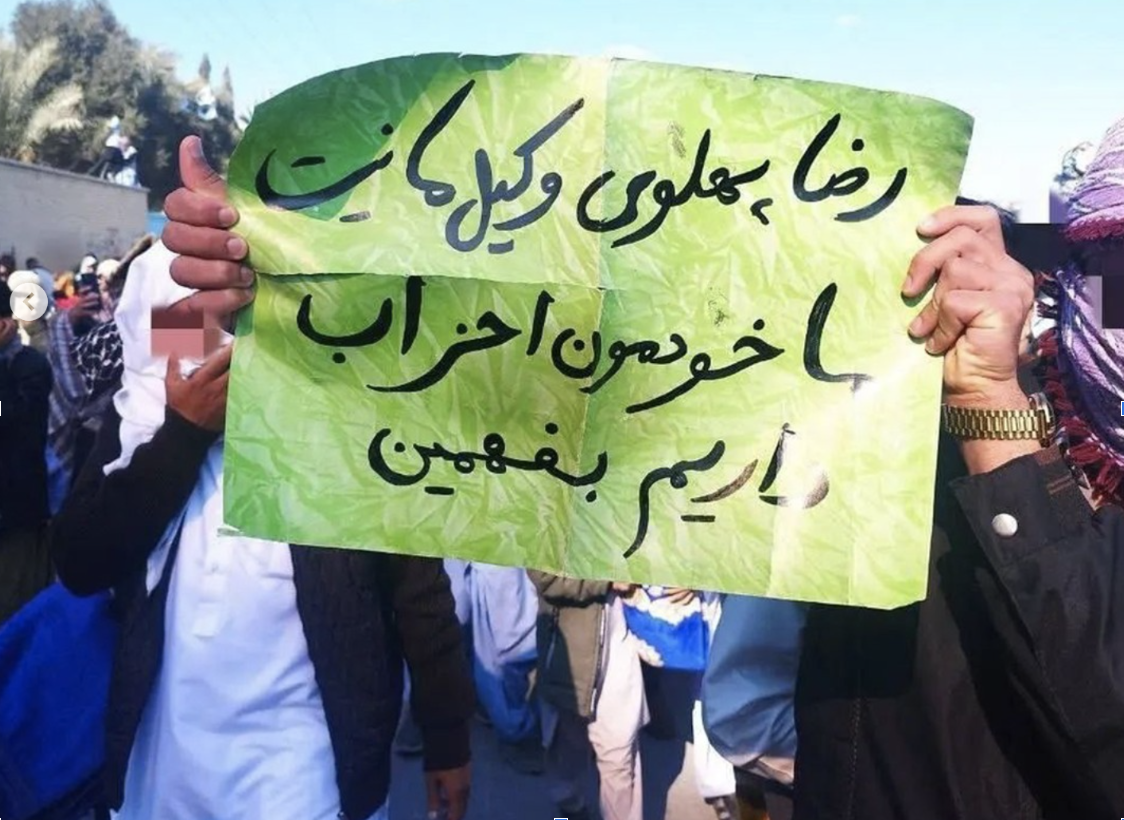 رضا پهلوی وکیل ما نیست
ما خودمون احزاب
داریم بفهمین